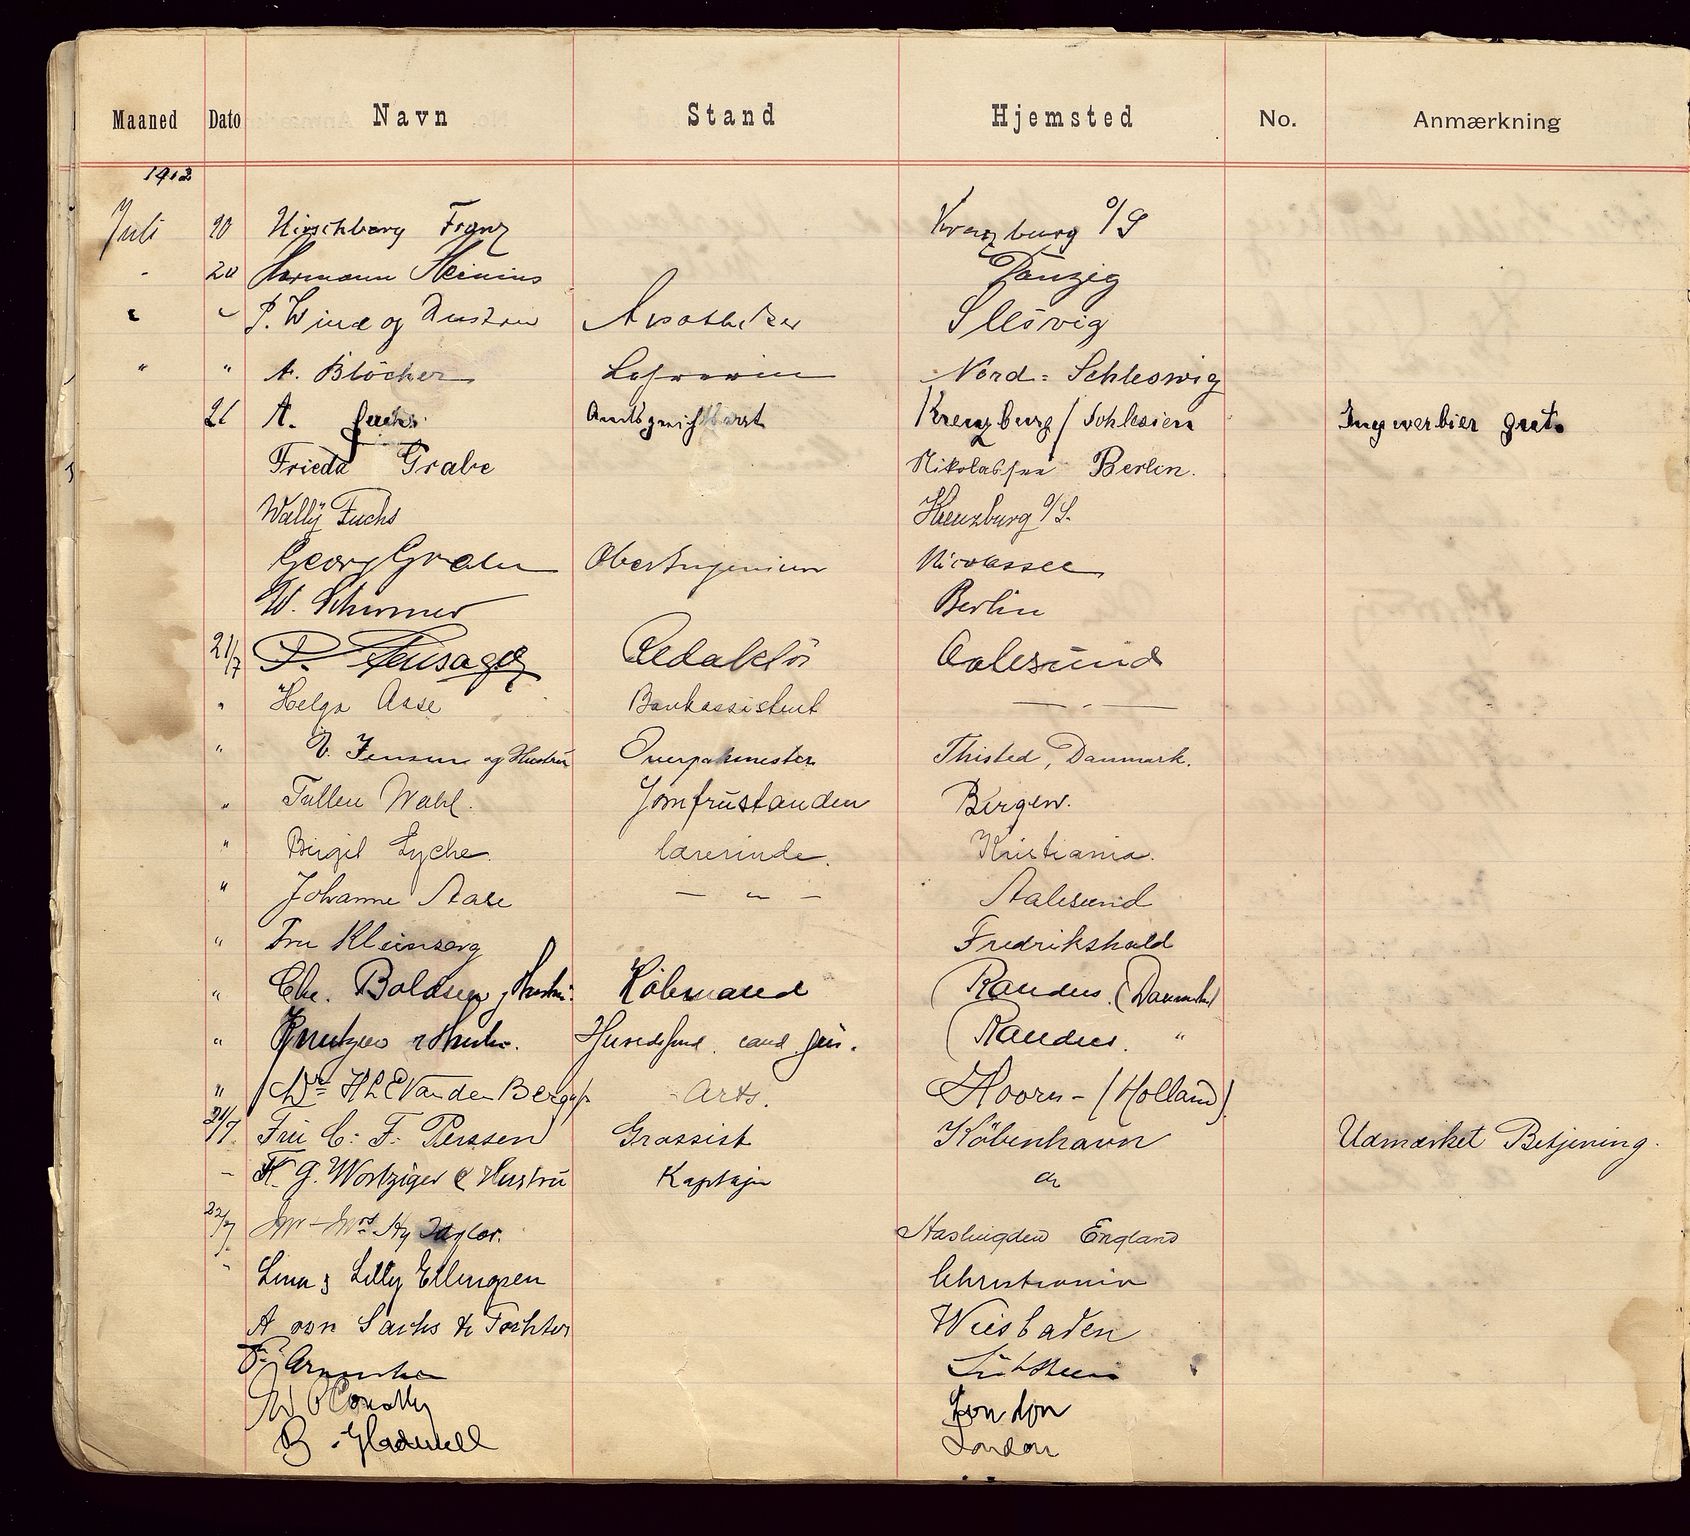 Maaned Dato Navn Stand Hjemsted No. Anmærkning
1912
Juli 20 Hirschberg Franz Kreuzburg O/S
20 Hermann Danzig
" " P. Wind og Hustru Apotheker Slesvig
" " A. Blöcher Lehrerin Nord=Schleswig
21 A. Fuchs Kreuzburg / Schlesien Ingwerbier gut.
Frieda Grabe Nikolassee Berlin.
Wally Fuchs Kreuzburg O/S.
Georg Grabe Oberingenieur Nicolassee
W. Schirmer Berlin
21/7 P. Redaktör Aalesund
" Helga Aase Bankassistent — " —
" V. Jensen og Hustru Thisted, Danmark.
" Tullen Wahl. Jomfrustanden Bergen.
" Birgit Lyche. lærerinde. Kristiania.
" Johanne Aase — " — Aalesund
" Fru Fredrikshald
" Chr. Boldsen og Hustru. Købmand Randers. (Danmark)
" Knutzen & Hustru. cand. jur. Randers. "
" Mr H L E Van den Berg Arts. Hoorn - (Holland)
21/7 Fru C. F. Persen Grossist København Udmærket Betjening.
— G. Wortziger & Hustru Kaptajn
22/7 Mr - Mrs Hy Taylor. Haslingden England
" Lina & Lilly Ellingsen Christiania
A von Sachs & Tochter Wiesbaden
W London
B. Gladwell London